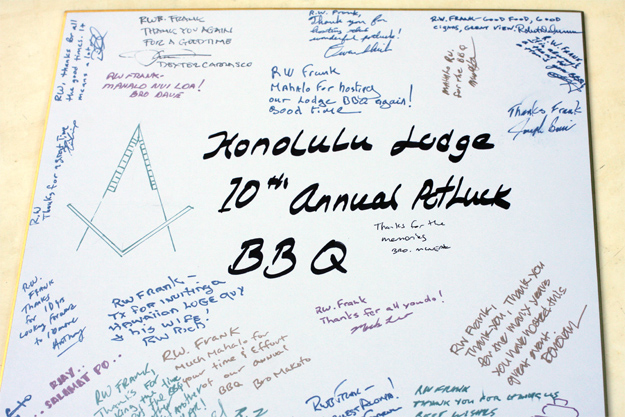 RW. FRANK
THANK YOU AGAIN
FOR A GOOD TIME
DEXTER CARRASCO
R.W. Frank,
Thank you for
hosting this
wonderful potluck!
RW. FRANK-GOOD FOOD, GOOD
CIGARS, GREAT VIEW.
RW, thanks for all
the good times. It
means a lot
RW FRANK-
MAHALO NUI LOA!
BRO DAVE
RW Frank
Mahalo For hosting
our Lodge BBQ again!
Good time
Mahalo RW.
for the BBQ
R.W. FRANK
Thanks Frank
R.W.
Thanks for a great time
Honolulu Lodge
10th Annual PotLuck
BBQ
Thanks for the
memories
BRO.
R.W.
FRANK
Thanks
for 10 yrs
Looking forward
to 10 more
Anthony
RW FRANK-
TX FOR INVITING A
HAWAIIAN LODGE GUY
& HIS WIFE!
RW RICH!
R.W. Frank
Thanks for all you do!
RW Frank,
Thank you, Thank you
for the many years
you have hosted this
great event.
R.W. FRANK
Much Mahalo for
your time & effort
of our annual
BBQ Bro Makoto
RW..
SALAMAT PO...
RW FRANK,
Thanks for
RW FRANK
THANK YOU FOR
BEST WISHES